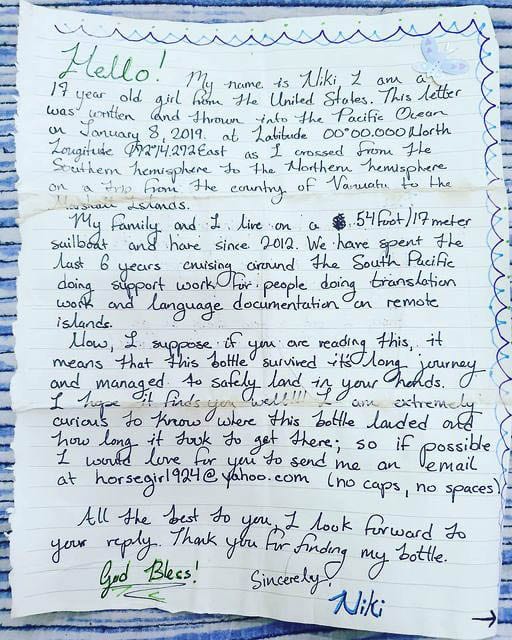 Hello! My name is Niki I am a
19 year old girl from the United States. This letter
was written and thrown into the Pacific Ocean
on January 8, 2019. at Latitude 00°00.000 North
Longitude 172°14.292 East as I crossed from the
Southern hemisphere to the Northern hemisphere
on a trip from the country of Vanuatu to the
Marshall Islands.
My family and I live on a 54 foot/17 meter
sailboat and have since 2012. We have spent the
last 6 years cruising around the South Pacific
doing support work for people doing translation
work and language documentation on remote
islands.
Now, I suppose if you are reading this, it
means that this bottle survived it's long journey
and managed to safely land in your hands.
I hope it finds you well!!! I am extremely
curious to know where this bottle landed and
how long it took to get there; so if possible
I would love for you to send me an email
at horsegirl924@yahoo.com (no caps, no spaces)
All the best to you, I look forward to
your reply. Thank you for finding my bottle.
God Bless! Sincerely,
Niki